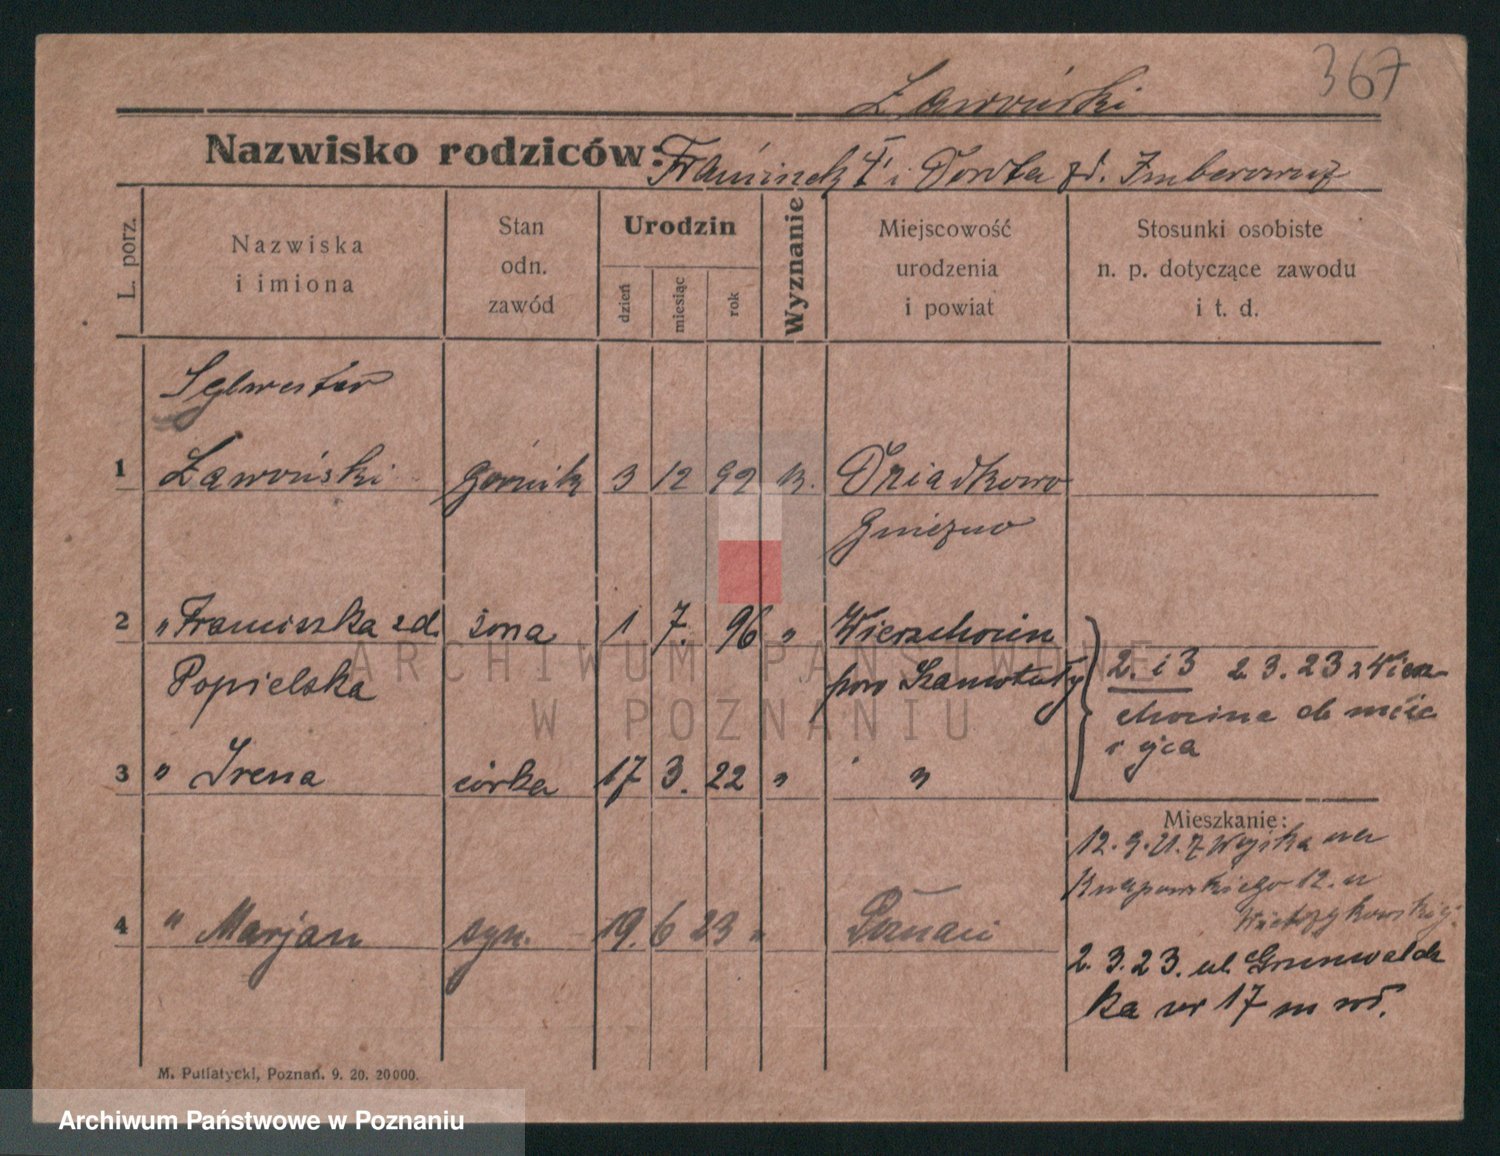 367
Ławoński
Nazwisko rodziców: Franciszek † i Dorota zd.
L. porz.
Nazwiska
i imiona
Stan
odn.
zawód
Urodzin
dzień
miesiąc
rok
Wyznanie
Miejscowość
urodzenia
i powiat
Stosunki osobiste
n. p. dotyczące zawodu
i t. d.
Sylwester
1 Ławoński górnik 3 12 92 k. Dziadkowo
Gniezno
2 „ Franciszka zd. żona 1 7. 96 „ Wierzchocin
Popielska pow Szamotuły
2. i 3 2. 3. 23 z Wierz-
chocina do
ojca
3 „ Irena córka 17 3. 22 „ „
Mieszkanie:
12. 9. 21. z Wojska na
Knapowskiego 12. u
4 „ Marjan syn. 19. 6 23 „ Poznań
2. 3. 23. ul. Grunwaldz
ka nr 17 m wł.
M. Putiatycki, Poznań. 9. 20. 20000.
ARCHIWUM PAŃSTWOWE
W POZNANIU
Archiwum Państwowe w Poznaniu